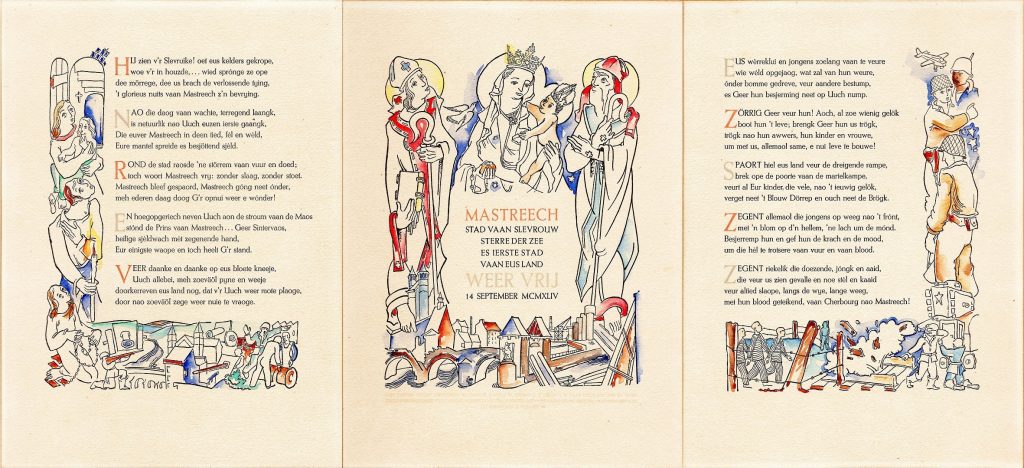 HIJ zien v'r Slevruike! oet eus kelders gekrope,
woe v'r in houzde, ... wied sprónge ze ope
dee mörrege, dee us brach de verlossende tijing,
't glorieus nuits vaan Mastreech z'n bevrijing.
NAO die daog vaan wachte, terregend laangk,
is netuurlik nao Uuch euzen ierste gaangk,
Die euver Mastreech in deen tied, fel en wèld,
Eure mantel spreide es besjöttend sjèld.
ROND de stad raosde 'ne störrem vaan vuur en doed;
toch woort Mastreech vrij: zonder slaag, zonder stoet.
Mastreech bleef gespaord, Mastreech góng neet ónder,
meh ederen daag doog G'r opnui weer e wónder!
EN hoegopgeriech neven Uuch aon de stroum vaan de Maos
stónd de Prins vaan Mastreech... Geer Sintervaos,
heilige sjèldwach met zegenende hand,
Eur einigste waope en toch heelt G'r stand.
VEER daanke en daanke op eus bloete kneeje,
Uuch allebei, meh zoeväöl pyne en weeje
doorkerreven eus land nog, dat v'r Uuch weer mote plaoge,
door nao zoeväöl zege weer nuie te vraoge.
MASTREECH
STAD VAAN SLEVROUW
STERRE DER ZEE
ES IERSTE STAD
VAAN EUS LAND
WEER VRIJ
14 SEPTEMBER MCMXLIV
EUS wèrreklui en jongens zoelang vaan te veure
wie wèld opgejaog, wat zal van hun weure,
ónder bomme gedreve, veur aandere bestump,
es Geer hun besjerming neet op Uuch nump.
ZÖRRIG Geer veur hun! Aoch, al zoe wienig gelök
Looi hun 't leve; brengk Geer hun us trögk,
trögk nao hun awwers, hun kinder en vrouwe,
um met us, allemaol same, e nui leve te bouwe!
SPAORT hiel eus land veur de dreigende rampe,
brek ope de poorte vaan de martelkampe,
veurt al Eur kinder die vele, nao 't ieuwig gelök,
verget neet 't Blouw Dörrep en ouch neet de Brögk.
ZEGENT allemaol die jongens op weeg nao 't frónt,
met 'n blom op d'n hellem, 'ne lach um de mónd.
Besjerremp hun en gef hun de krach en de mood,
um die hèl te troisere vaan vuur en vaan blood.
ZEGENT riekelik die doezende, jóngk en aajd,
die veur us zien gevalle en noe stèl en kaajd
veur altied slaope, langs de wije, lange weeg,
met hun blood geteikend, vaan Cherbourg nao Mastreech!